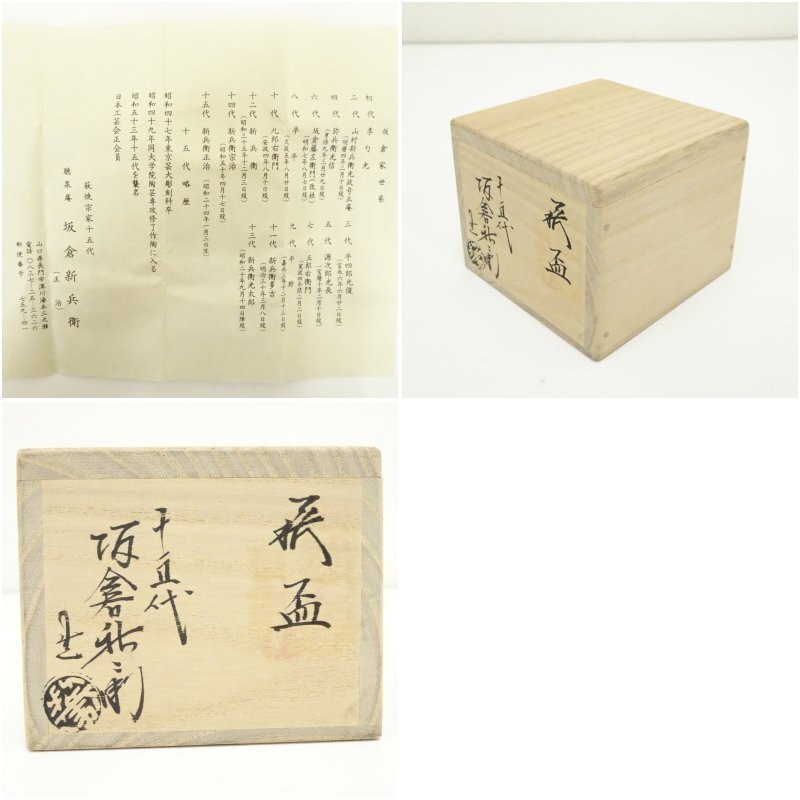 坂倉家世系
初代 李勺光
二代 山村新兵衛光政号正庵
(明暦四年三月十日歿)
三代 平四郎光俊
(宝永六年六月廿二日歿)
四代 弥兵衛光信
(享保九年十二月廿九日歿)
五代 源次郎光長
(宝暦十年二月十日歿)
六代 坂倉藤左衛門(改姓)
(明和七年八月七日歿)
七代 五郎右衛門
八代 平
(文政五年八月廿日歿)
九代 平助
十代 九郎右衛門
(安政四年八月十日歿)
十一代 新兵衛多吉
(明治三十年三月八日歿)
十二代 新兵衛
(昭和三十五年十二月三日歿)
十三代 新兵衛光太郎
(昭和二十年九月十四日陣歿)
十四代 新兵衛治
(昭和五十年四月十七日歿)
十五代 新兵衛正治
(昭和二十四年一月三日生)
十五代略歴
昭和四十七年東京芸大彫刻科卒
昭和四十九年同大学院陶芸専攻修了作陶に入る
昭和五十三年十五代を襲名
日本工芸会正会員
萩焼宗家十五代
聴泉庵 坂倉新兵衛
(正治)
山口県長門市深川湯本三ノ瀬
電話〇八三七-二五-三六二六
郵便番号 七五九-四一
萩盃
十五代
坂倉新兵衛
造
萩盃
十五代
坂倉新兵衛
造